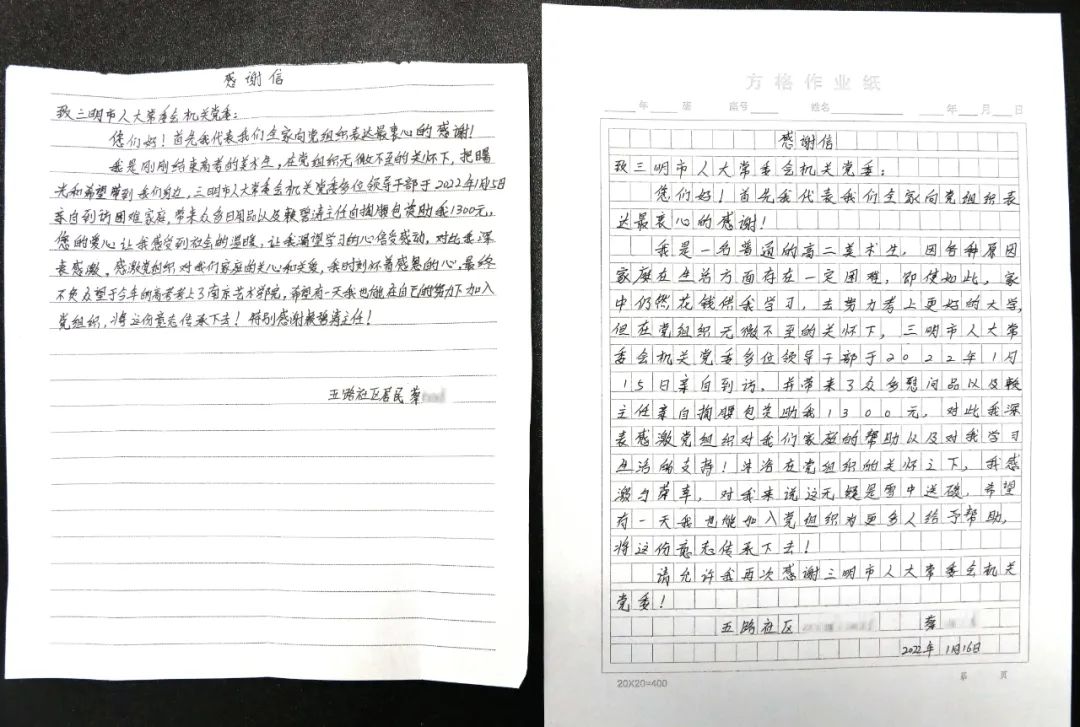 感谢信
致三明市人大常委会机关党委:
您们好!首先我代表我们全家向党组织表达最衷心的感谢!
我是刚刚结束高考的美术生,在党组织无微不至的关怀下,把曙
光和希望带到我们身边,三明市人大常委会机关党委多位领导干部于2022年1月15日
亲自到访困难家庭,带来众多日用品以及赖碧涛主任自掏腰包资助我1300元,
您的爱心让我感受到社会的温暖,让我渴望学习的心倍受感动,对此我深
表感激,感激党组织对我们家庭的关心和关爱,我时刻怀着感恩的心,最终
不负众望于今年的高考考上了南京艺术学院,希望有一天我也能在自己的努力下加入
党组织,将这份意志传承下去!特别感谢赖碧涛主任!
五路社区居民 蔡
方格作业纸
年 班 座号 姓名 年 月 日
感谢信
致三明市人大常委会机关党委:
您们好!首先我代表我们全家向党组织表
达最衷心的感谢!
我是一名普通的高二美术生,因各种原因
家庭在生活方面存在一定困难,即使如此,家
中仍然花钱供我学习,去努力考上更好的大学,
但在党组织无微不至的关怀下,三明市人大常
委会机关党委多位领导干部于2022年1月
15日亲自到访,并带来了众多慰问品以及赖
主任亲自掏腰包资助我1300元,对此我深
表感激党组织对我们家庭的帮助以及对我学习
生活的支持!沐浴在党组织的关怀之下,我感
激与荣幸,对我来说这无疑是雪中送碳,希望
有一天我也能加入党组织为更多人给予帮助,
将这份意志传承下去!
请允许我再次感谢三明市人大常委会机关
党委!
五路社区 蔡
2022年 1月16日
20X20=400 第 页